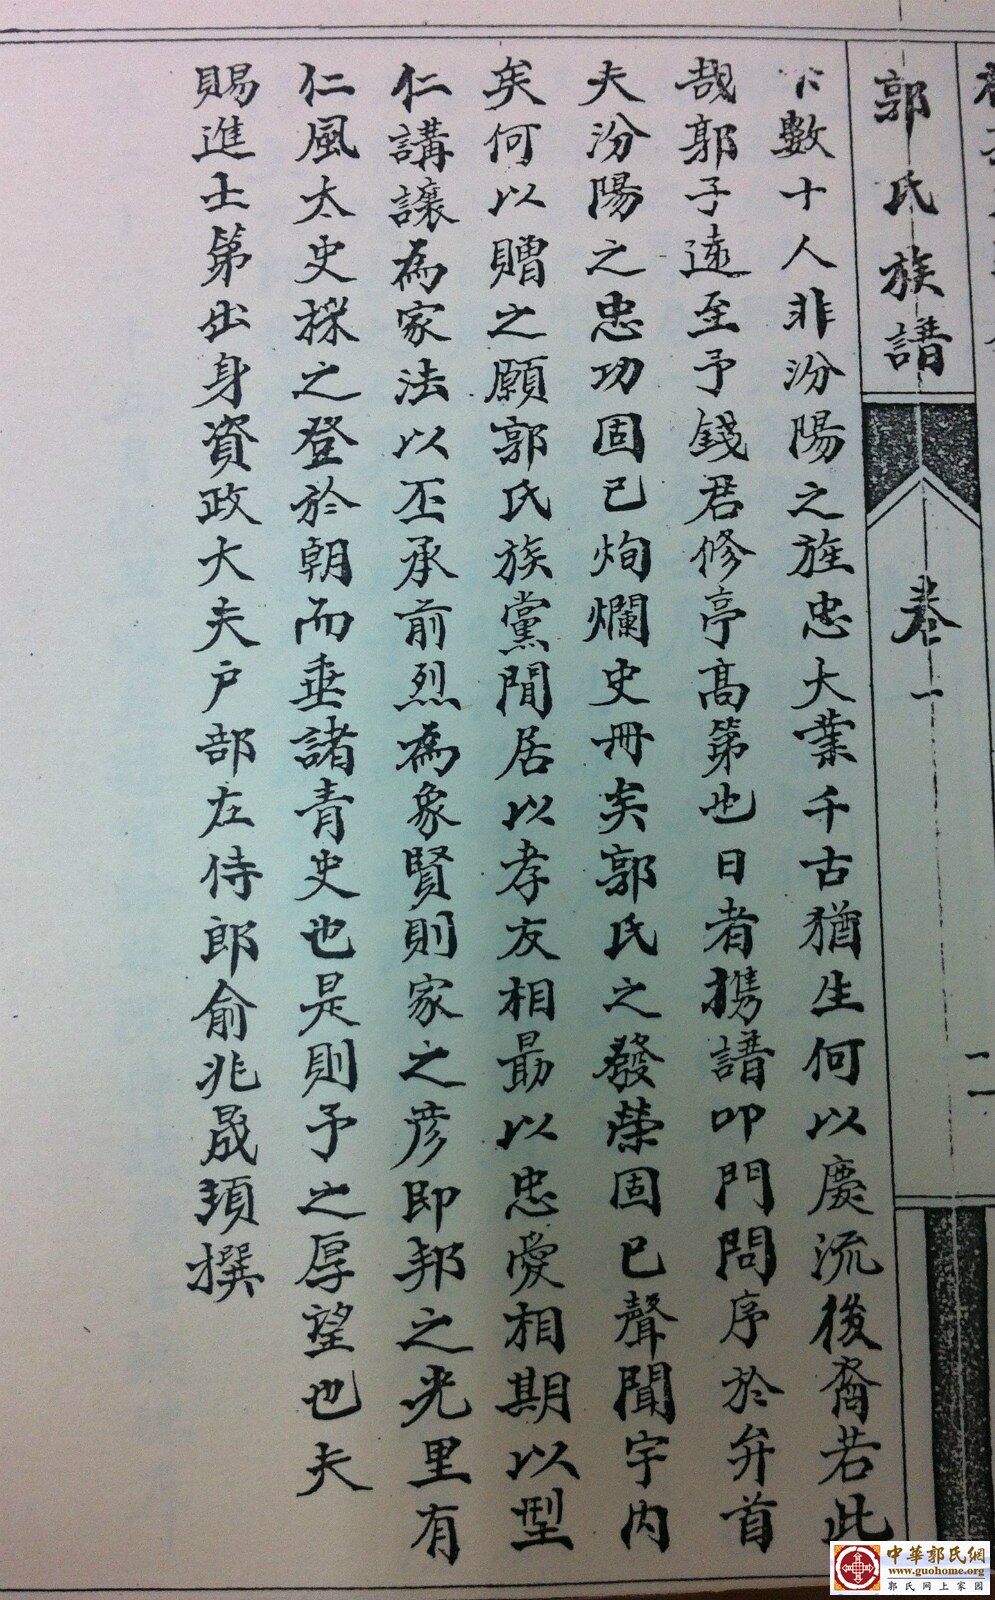 郭氏族譜
卷一
數十人非汾陽之旌忠大業千古猶生何以慶流後裔若此
哉郭子遠至予錢君修亭高第也日者携譜叩門問序於弁首
夫汾陽之忠功固已炳爛史冊矣郭氏之發榮固已聲聞宇内
矣何以贈之願郭氏族黨閒居以孝友相勗以忠愛相期以型
仁講讓為家法以丕承前烈為象賢則家之彦即邦之光里有
仁風太史採之登於朝而垂諸青史也是則予之厚望也夫
賜進士第出身資政大夫户部左侍郎俞兆晟頊撰
中華郭氏網
www.guohome.org
郭氏网上家园